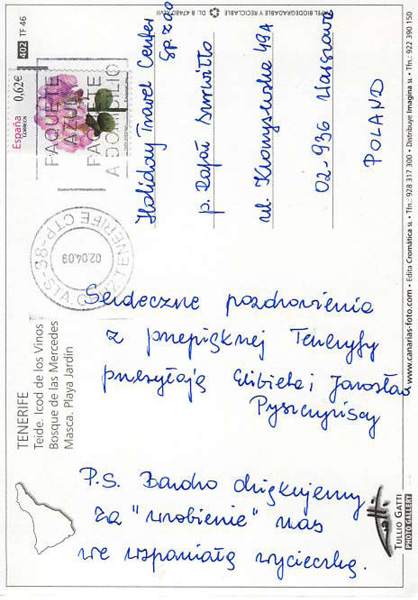 TENERIFE
Teide. Icod de los Vinos
Bosque de las Mercedes
Masca. Playa Jardín
402 TF 46
España
CORREOS
0,62€
PAQUETE
AZUL
PAQUETE
A DOMICILIO
CTP-98-STA.CRUZ.TENERIFE
02.04.09
Serdeczne pozdrowienia
z przepięknej Teneryfy
przesyłają Elżbieta i Jarosław
P.S. Bardzo dziękujemy
za "wrobienie" nas
we wspaniałą wycieczkę.
Holiday Travel Center
Sp. z oo
p. Rafał
ul.
02-936 Warszawa
POLAND
TULLIO GATTI
PHOTO GALLERY
www.canarias-foto.com • Edita Cromática SL • Tfn.: 928 317 300 • Distribuye Imagina SL • Tfn.: 922 390 150